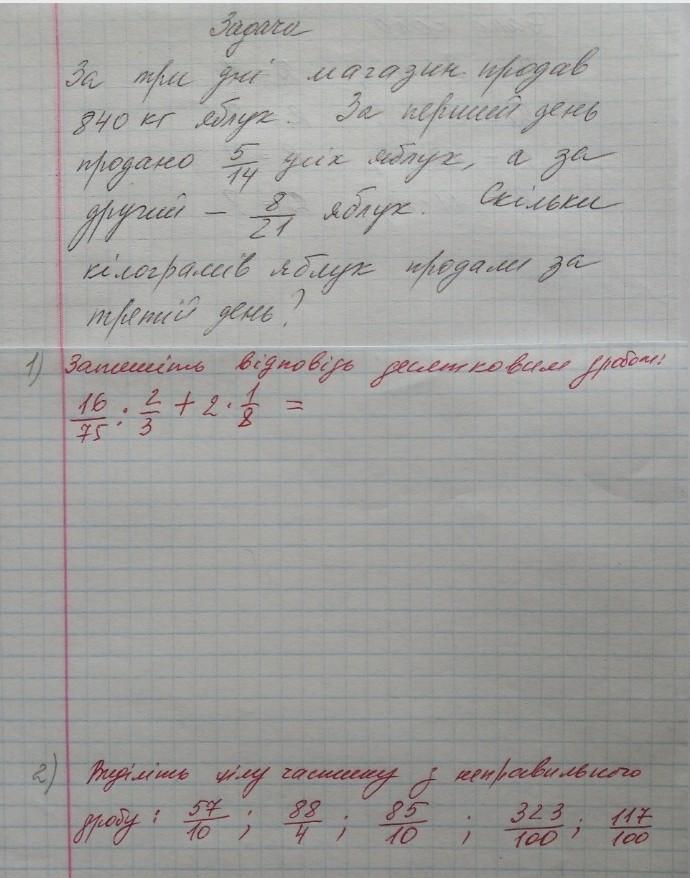 Задача
За три дні магазин продав
840 кг яблук. За перший день
продано 5/14 усіх яблук, а за
другий – 8/21 яблук. Скільки
кілограмів яблук продали за
третій день?
1) Запишіть відповідь десятковим дробом:
16/75 : 2/3 + 2 · 1/8 =
2) Виділіть цілу частину з неправильного
дробу: 57/10 ; 88/4 ; 85/10 ; 323/100 ; 117/100